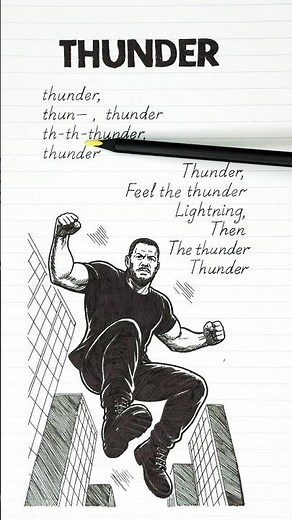 THUNDER
thunder,
thun– , thunder
th-th-thunder,
thunder
Thunder,
Feel the thunder
Lightning,
Then
The thunder
Thunder